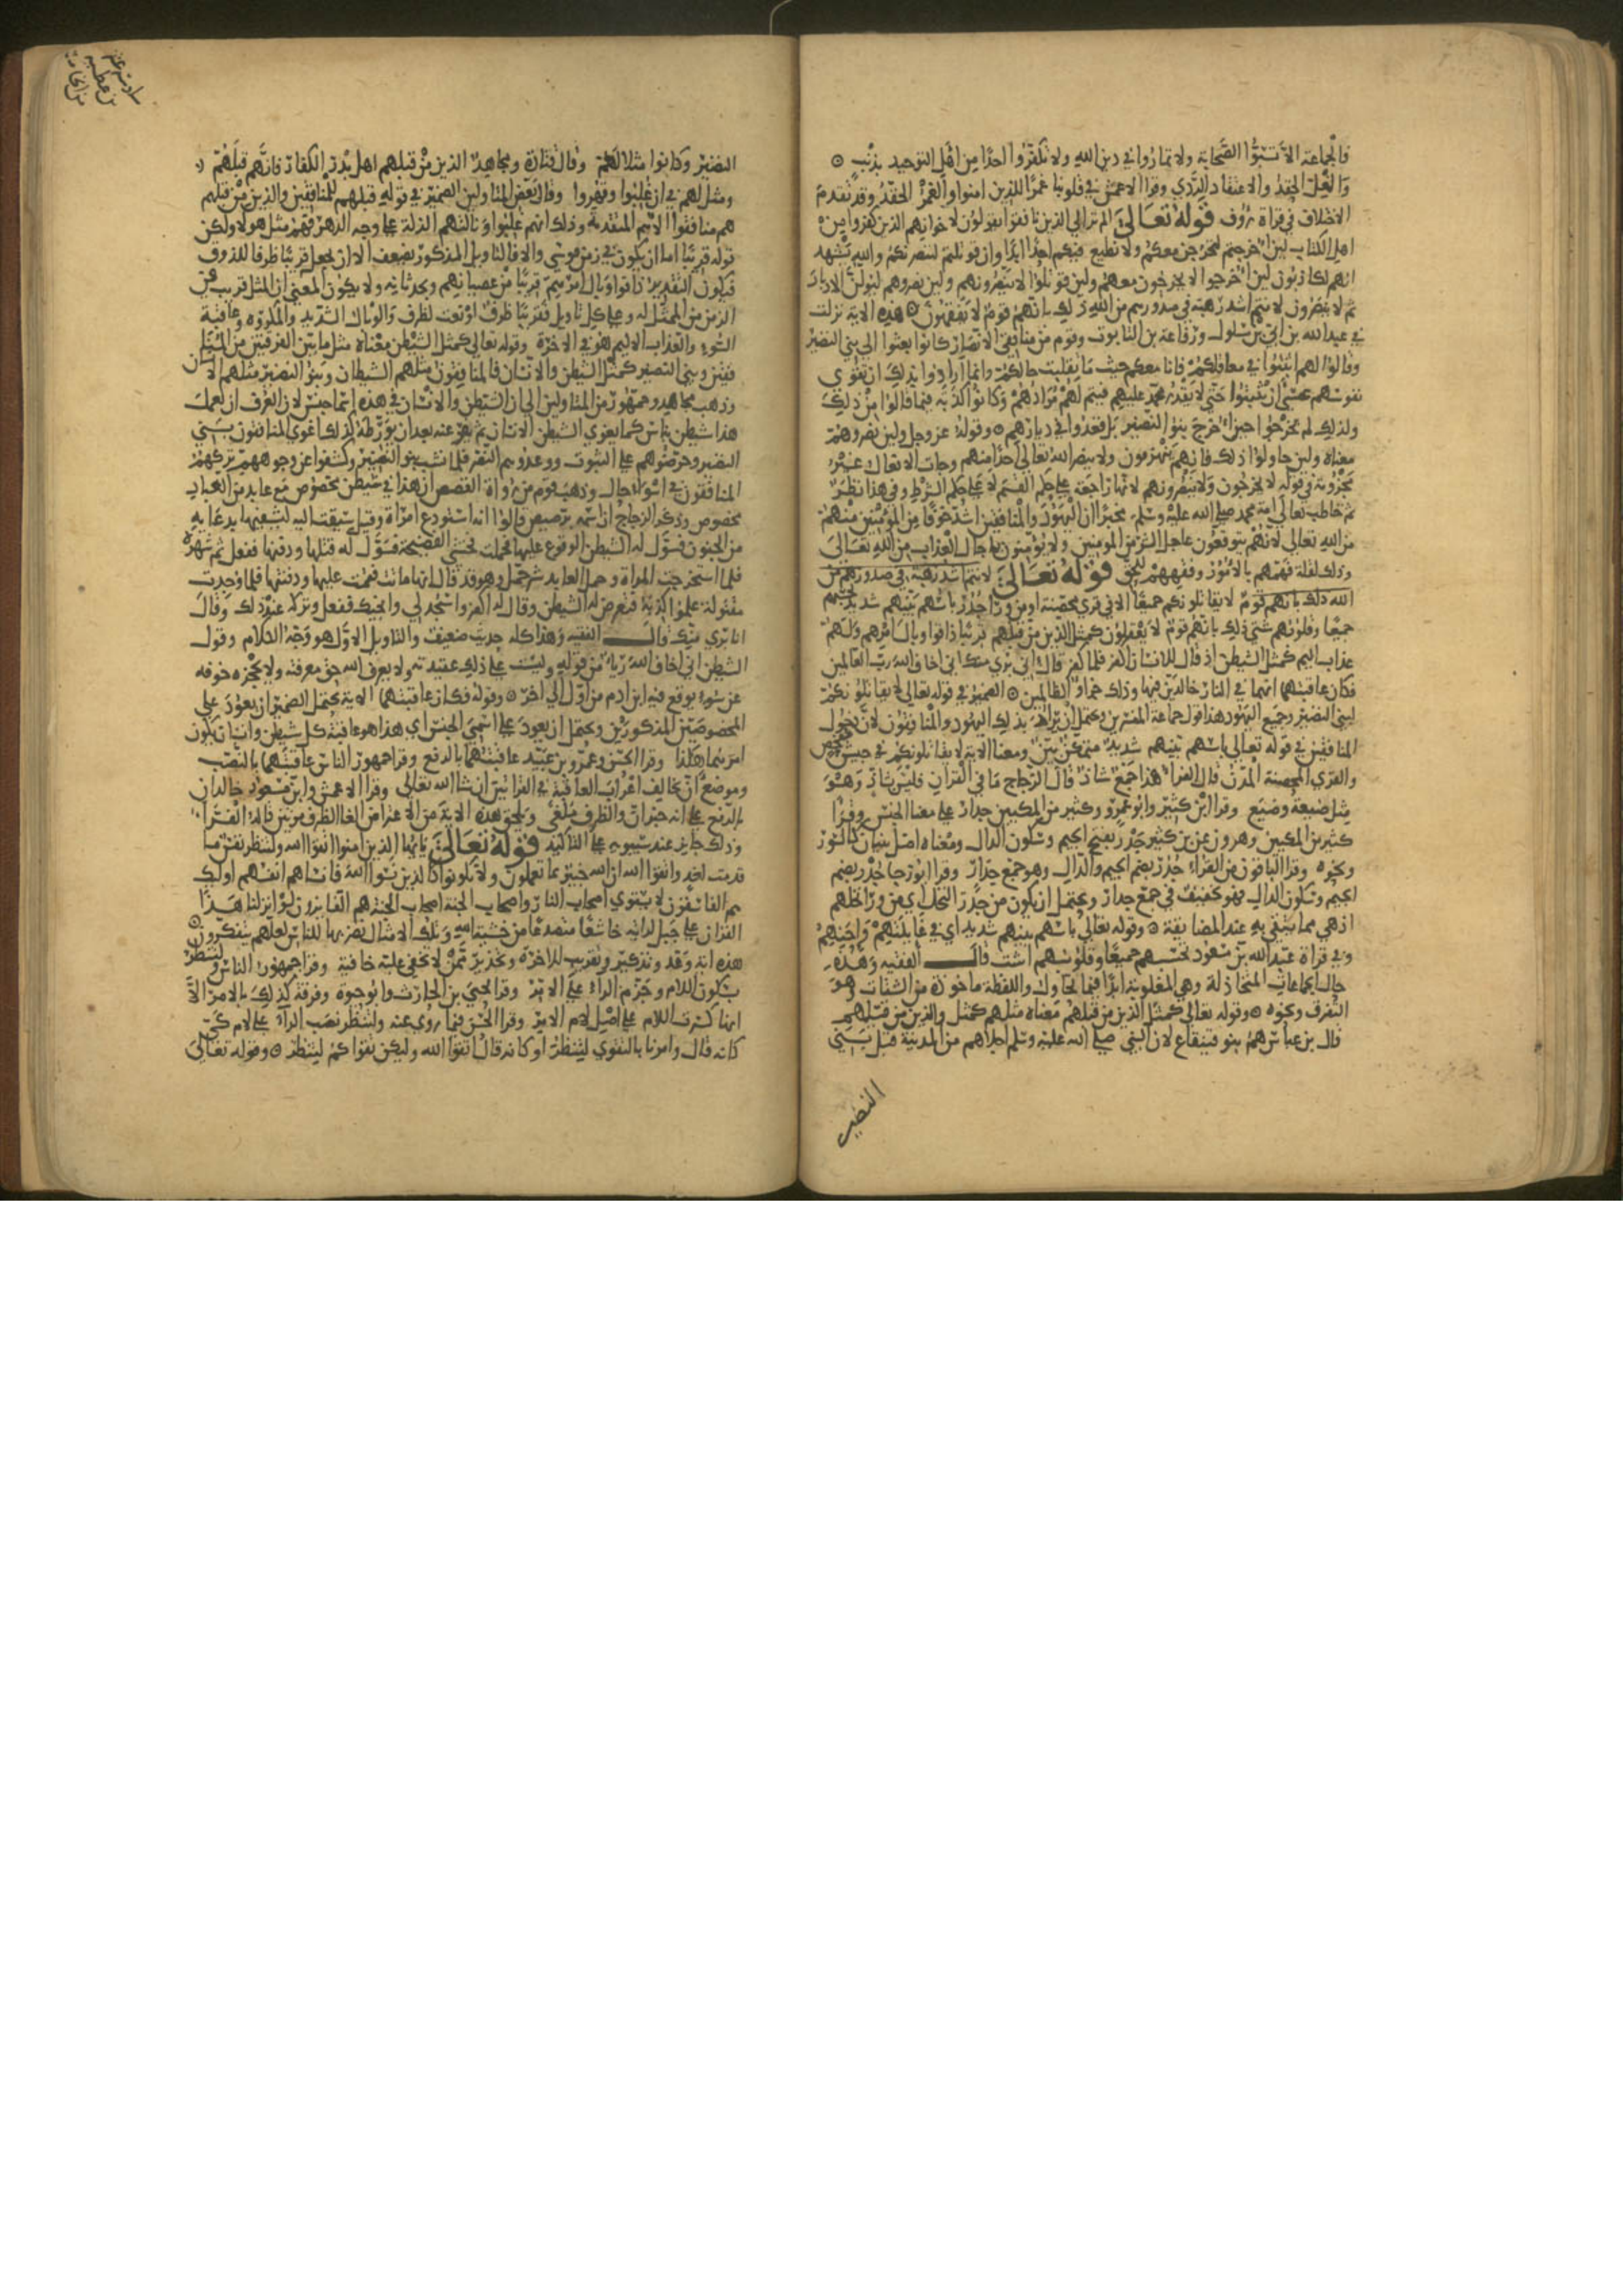 فالجماعة الا تسبوا الصحابة ولا تماروا في دين الله ولا تكفروا احدا من اهل التوحيد بذنب ⊙
والغل الحقد والاعتقاد الردي وقرا الاعمش في قلوبنا غمرا للذين امنوا والغمر الحقد وقد تقدم
الاختلاف في قراة رؤف قوله تعالى الم تر الي الذين نافقوا يقولون لاخوانهم الذين كفروا من
اهل الكتاب لين اخرجتم لنخرجن معكم ولا نطيع فيكم احدا ابدا وان قوتلتم لننصرنكم والله يشهد
انهم لكاذبون لين اخرجوا لا يخرجون معهم ولين قوتلوا لا ينصرونهم ولين نصروهم ليولن الادبار
ثم لا ينصرون لانتم اشد رهبة في صدورهم من الله ذلك بانهم قوم لا يفقهون ⊙ هذه الاية نزلت
في عبدالله بن ابي بن سلول ورفاعة بن التابوت وقوم من منافقي الانصار كانوا بعثوا الي بني النضير
وقالوا لهم اثبتوا في معاقلكم فانا معكم حيث ما تقلبت حالكم وانما ارادوا بذلك ان تقوي
نفوسهم عسى ان يثبتوا حتي لا يقدر محمد عليهم فيتم لهم مرادهم وكانوا كذبة فيما قالوا من ذلك
ولذلك لم يخرجوا حين اخرج بنو النضير بل قعدوا في ديارهم ⊙ وقوله عز وجل ولين نصروهم
معناه ولين حاولوا ذلك فانهم ينهزمون ولا ينصر الله تعالى احدا منهم وجات الافعال غير
مجزومة في قوله لا يخرجون ولا ينصرونهم لانها راجعة على حكم القسم لا على حكم الشرط وفي هذا نظر
ثم خاطب تعالي امة محمد صلى الله عليه وسلم مخبرا ان اليهود والمنافقين اشد خوفا من المؤمنين منهم
من الله تعالي لانهم يتوقعون عاجل الشر من المومنين ولا يؤمنون باجل العذاب من الله تعالى
وذلك لقلة فهمهم بالامور وفقههم للحق قوله تعالى لانتم اشد رهبة في صدورهم من
الله ذلك بانهم قوم لا يقاتلونكم جميعا الا في قري محصنة او من ورا جدر باسهم بينهم شديد تحسبهم
جميعا وقلوبهم شتي ذلك بانهم قوم لا يعقلون كمثل الذين من قبلهم قريبا ذاقوا وبال امرهم ولهم
عذاب اليم كمثل الشيطن اذ قال للانسان اكفر فلما كفر قال اني بري منك اني اخاف الله رب العالمين
فكان عاقبتهما انهما في النار خالدين فيها وذلك جزاو الظالمين ⊙ الضمير في قوله تعالي لا يقاتلونكم
لبني النضير وجميع اليهود هذا قول جماعة المفسرين ويحتمل ان يراد بذلك اليهود والمنافقون لان دخول
المنافقين في قوله تعالى باسهم بينهم شديد متمكن بين ومعنا الاية لا يقاتلونكم في جيش مفحص
والقري المحصنة المدن قال الفراء هذا جمع شاذ قال الزجاج ما في القران فليس بشاذ وهو
مثل ضيعة وضيع وقرا ابن كثير وابو عمرو وكثير من المكيين جدار علي معنا الجنس وقرا
كثير من المكيين وهرون عن بن كثير جدر بفتح الجيم وسكون الدال ومعناه اصل بنيان كالسور
ونحوه وقرا الباقون من القراء جدر بضم الجيم والدال وهو جمع جدار وقرا ابو رجا جدر بضم
الجيم وسكون الدال فهو تخفيف في جمع جدار ويحتمل ان يكون من جدر النخل اي من ورا نخلهم
اذ هي مما يتقي به عند المضايقة ⊙ وقوله تعالي باسهم بينهم شديد اي في غايلتهم واحنهم
وفي قراة عبد الله بن مسعود تحسبهم جميعا وقلوبهم اشت قال الفقيه وهذه
حال الجماعات المتخاذلة وهي المغلوبة ابدا فيما تحاول واللفظة ماخوذة من الشتات وهو
التفرق ونحوه ⊙ وقوله تعالي كمثل الذين من قبلهم معناه مثلهم كمثل والذين من قبلهم
قال بن عباس هم بنو قينقاع لان النبي صلى الله عليه وسلم اجلاهم من المدينة قبل بني
النضير
النضير وكانوا مثلا لهم وقال قتادة ومجاهد الذين من قبلهم اهل بدر الكفار فانهم قبلهم
ومثل لهم في ان غلبوا وقهروا وقال بعض المتاولين الضمير في قوله قبلهم للمنافقين والذين من قبلهم
هم منافقوا الامم المتقدمة وذلك انهم غلبوا ونالتهم الذلة علي وجه الدهر فهم مثل هولا ولكن
قوله قريبا اما ان يكون في زمن موسي والا فالتاويل المذكور يضعف الا ان يجعل قريبا ظرفا للذوق
فيكون التقدير ذاقوا وبال امرهم قريبا من عصيانهم وبحدثانه ولا يكون المعني ان المثل قريب في
الزمن من الممثل له وعلي كل تاويل فقريبا ظرف او نعت لظرف والوبال الشديد والمكروه وعاقبة
السوء والعذاب الاليم هو في الاخرة وقوله تعالي كمثل الشيطن معناه مثل ما بين الفرقتين من المنافقين
وبني النضير كمثل الشيطن والانسان فالمنافقون مثلهم الشيطان وبنو النضير مثلهم الانسان
وذهب مجاهد وجمهور من المتاولين الي ان الشيطن والانسان في هذه اسما جنس لان العرف ان يعمل
هذا شيطن بناس كما يغوي الشيطن الانسان ثم يفر عنه بعد ان يورطه كذلك اغوي المنافقون بني
النضير وحرضوهم علي الثبوت ووعدوهم النصر فلما نشب بنو النضير وكشفوا عن وجوههم تركهم
المنافقون في اسوا حال وذهب قوم من رواة القصص ان هذا في شيطن مخصوص مع عابد من العباد
مخصوص وذكر الزجاج ان اسمه برصيص قالوا انه استودع امراة وقيل سيقت اليه ليشفيها بدعايه
من الجنون فسول له الشيطن الوقوع عليها فحملت فخشي الفضيحة فسول له قتلها ودفنها ففعل ثم شهره
فلما استخرجت المراة وحمل العابد شر حمل وهو قد قال انها ماتت فقمت عليها ودفنتها فلما وجدت
مقتولة علموا كذبه فتعرض له الشيطن وقال له اكفر واسجد لي وانجيك ففعل وتركه عند ذلك وقال
انا بري منك قال الفقيه وهذا كله حديث ضعيف والتاويل الاول هو وجه الكلام وقول
الشيطن اني اخاف الله رياء من قوله وليست علي ذلك عقيدته ولا يعرف الله حق معرفته ولا يحجزه خوفه
عن سوء يوقع فيه ابن ادم من اول الي اخر ⊙ وقوله فكان عاقبتهما الاية يحتمل الضمير ان يعود علي
المخصوصين المذكورين ويحتمل ان يعود علي اسمي الجنس اي هذا هو عاقبة كل شيطن وانسان يكون
امرهما هكذا وقرا الحسن وعمرو بن عبيد عاقبتهما بالرفع وقرا جمهور الناس عاقبتهما بالنصب
وموضع ان يخالف اعراب العاقبة في القراتين ان شا الله تعالي وقرا الاعمش وابن مسعود خالدان
بالرفع علي انه خبر ان والظرف ملغي ويلحق هذه الاية من الاعتراض الغا الظرف مرتين قاله الفراء
وذلك جايز عند سيبويه علي التاكيد قوله تعالى يايها الذين امنوا اتقوا الله ولتنظر نفس ما
قدمت لغد واتقوا الله ان الله خبير بما تعملون ولا تكونوا كالذين نسوا الله فانساهم انفسهم اولئك
هم الفاسقون لا يستوي اصحاب النار واصحاب الجنة اصحاب الجنة هم الفايزون لو انزلنا هذا
القران علي جبل لرايته خاشعا متصدعا من خشية الله وتلك الامثال نضربها للناس لعلهم يتفكرون ⊙
هذه اية وعد وتذكير وتقريب للاخرة وتحذير ممن لا تخفي عليه خافية وقرا جمهور الناس ولتنظر
بسكون اللام وجزم الراء علي الامر وقرا يحيي بن الحارث وابو حيوة وفرقة كذلك بالامر الا
انها كسرت اللام علي اصل لام الامر وقرا الحسن فيما روي عنه ولتنظر نصب الراء علي لام كي
كانه قال وامرنا بالتقوي لتنظر او كانه قال اتقوا الله وليكن تقواكم لتنظر ⊙ وقوله تعالى